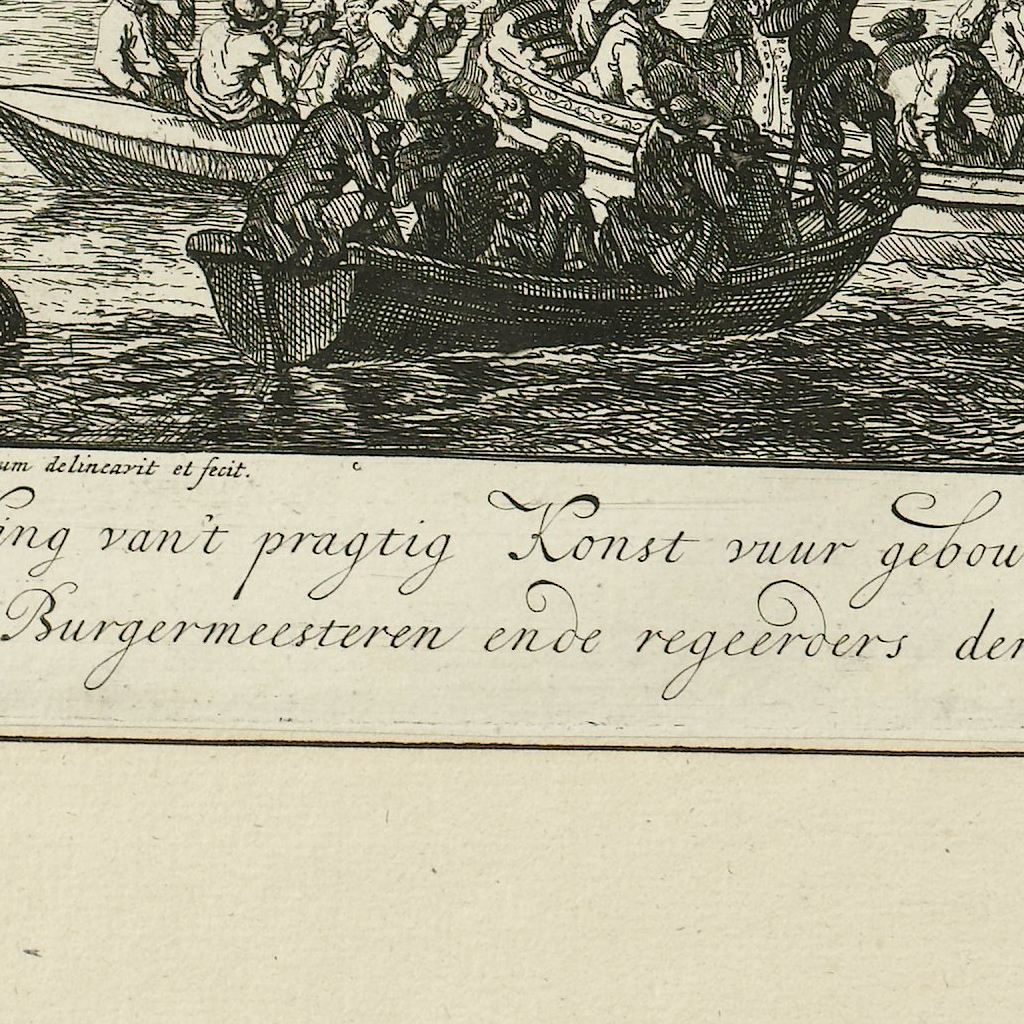 um delineavit et fecit.
ing van't pragtig Konst vuur gebou
Burgermeesteren ende regeerders der